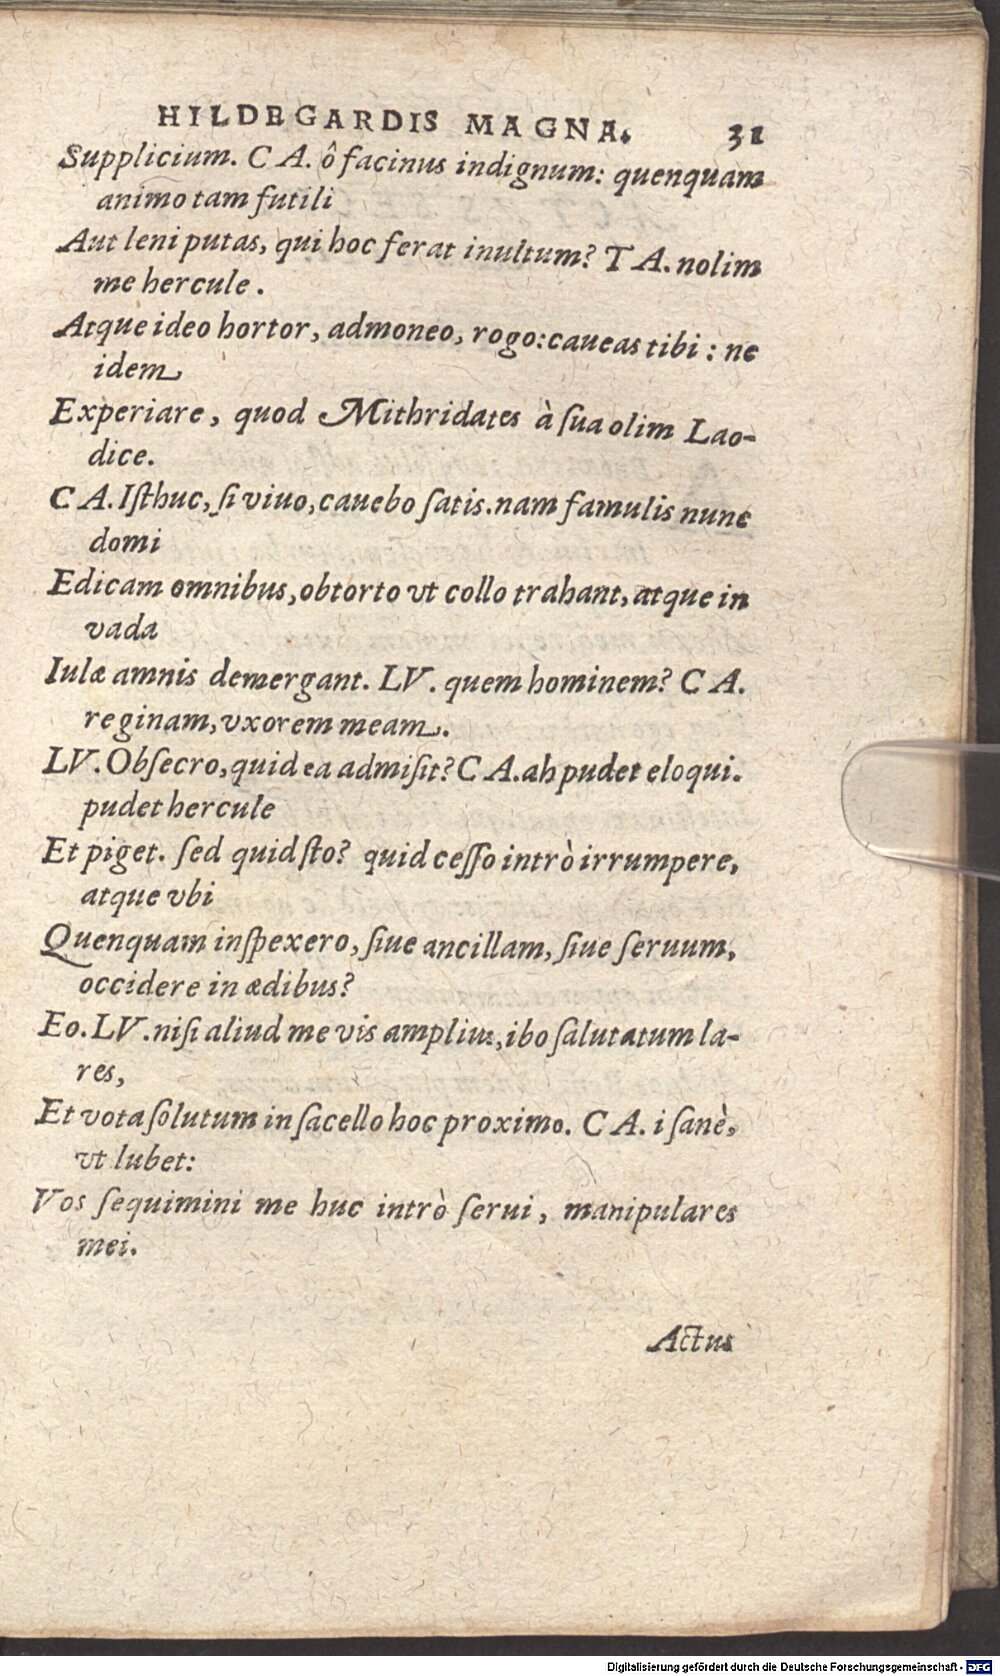 HILDEGARDIS MAGNA. 31
Supplicium. CA. ô facinus indignum: quenquam
animo tam futili
Aut leni putas, qui hoc ferat inultum? TA. nolim
me hercule.
Atque ideo hortor, admoneo, rogo: caueas tibi: ne
idem
Experiare, quod Mithridates à sua olim Lao-
dice.
CA. Isthuc, si viuo, cauebo satis. nam famulis nunc
domi
Edicam omnibus, obtorto vt collo trahant, atque in
vada
Iulæ amnis demergant. LV. quem hominem? CA.
reginam, vxorem meam.
LV. Obsecro, quid ea admisit? CA. ah pudet eloqui.
pudet hercule
Et piget. sed quid sto? quid cesso intrò irrumpere,
atque vbi
Quenquam inspexero, siue ancillam, siue seruum,
occidere in ædibus?
Eo. LV. nisi aliud me vis amplius, ibo salutatum la-
res,
Et vota solutum in sacello hoc proximo. CA. i sanè,
vt lubet:
Vos sequimini me huc intrò serui, manipulares
mei.
Actus
Digitalisierung gefördert durch die Deutsche Forschungsgemeinschaft - DFG